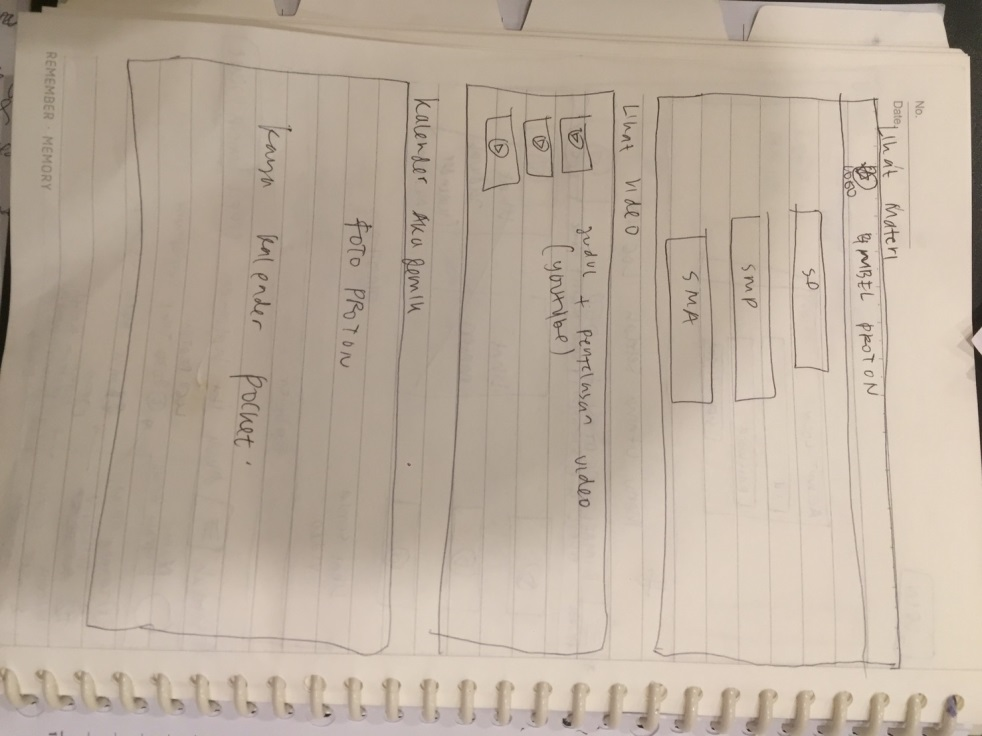 No.
Date
Lihat Materi
LOGO BIMBEL PROTON
SD
SMP
SMA
Lihat Video
Judul + Penjelasan video
(youtube)
Kalender Akademik
FOTO PROTON
kaya kalender pocket.
REMEMBER · MEMORY